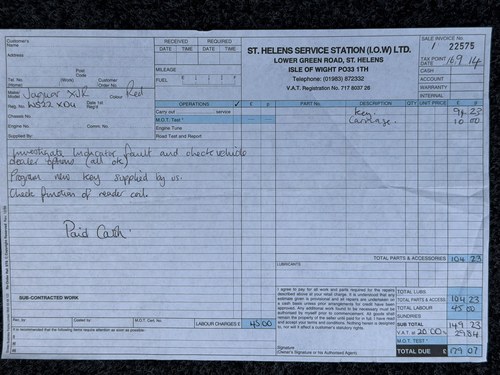 Customer's Name
RECEIVED
REQUIRED
DATE TIME DATE TIME
ST. HELENS SERVICE STATION (I.O.W) LTD.
LOWER GREEN ROAD, ST. HELENS
ISLE OF WIGHT PO33 1TH
Telephone: (01983) 872332
V.A.T. Registration No. 717 8037 26
SALE INVOICE No.
22575
TAX POINT DATE 16.9.14
CASH
ACCOUNT
WARRANTY
INTERNAL
Address
Post Code
MILEAGE
FUEL
Tel. No. (Home)
Customer Order No.
Make/Model Jaguar XJR Colour Red
Reg. No. WS22 XDU Date 1st Regd
Chassis No.
Engine No. Comm. No.
Supplied By:
OPERATIONS £ p
Carry out Service
M.O.T. Test *
Engine Tune
Road Test and Report
PART No. DESCRIPTION QTY UNIT PRICE £ p
Key 94 23
Carriage 10 00
Investigate Indicator fault and check vehicle
dealer options (all ok)
Program new key supplied by us.
Check function of reader coil.
Paid Cash.
TOTAL PARTS & ACCESSORIES 104 23
LUBRICANTS
SUB-CONTRACTED WORK
LABOUR CHARGES £ 45 00
It is recommended that the following items require attention as soon as possible:-
I agree to pay for all work and parts required by the repairs
described above at your retail charge. It is understood that any
estimate given is provisional and all repairs are undertaken on
a cash basis unless prior arrangements for credit have been
approved. Any additional work found to be necessary must be
authorised by myself prior to commencement. All goods shall
remain the property of the seller until paid for in full. I have read
and accept your terms and conditions. Nothing herein is designed
to, nor will it affect a customer's statutory rights.
Signature
(Owner's Signature or his Authorised Agent)
TOTAL LUBS
TOTAL PARTS & ACCESS. 104 23
TOTAL LABOUR 45 00
SUNDRIES
SUB TOTAL 149 23
V.A.T. @ 20.00 % 29.84
M.O.T. Test *
TOTAL DUE £ 179 07